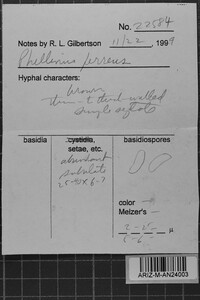 No. 22584
Notes by R. L. Gilbertson 11/22, 1999
Phellinus ferreus
Hyphal characters:
brown
thin - thick-walled
simple septate
basidia cystidia, basidiospores
setae, etc.
abundant
subulate
color
Melzer's -
μ
ARIZ-M-AN24003